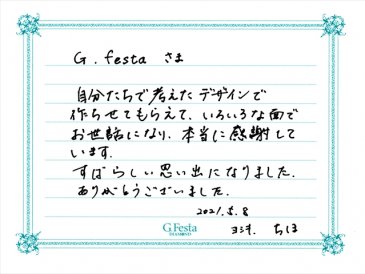 G.festa さま
自分たちで考えたデザインで
作らせてもらえて、いろいろな面で
お世話になり、本当に感謝して
います。
すばらしい思い出になりました。
ありがとうございました。
2021.5.8
ヨシキ. ちほ
G.Festa
DIAMOND